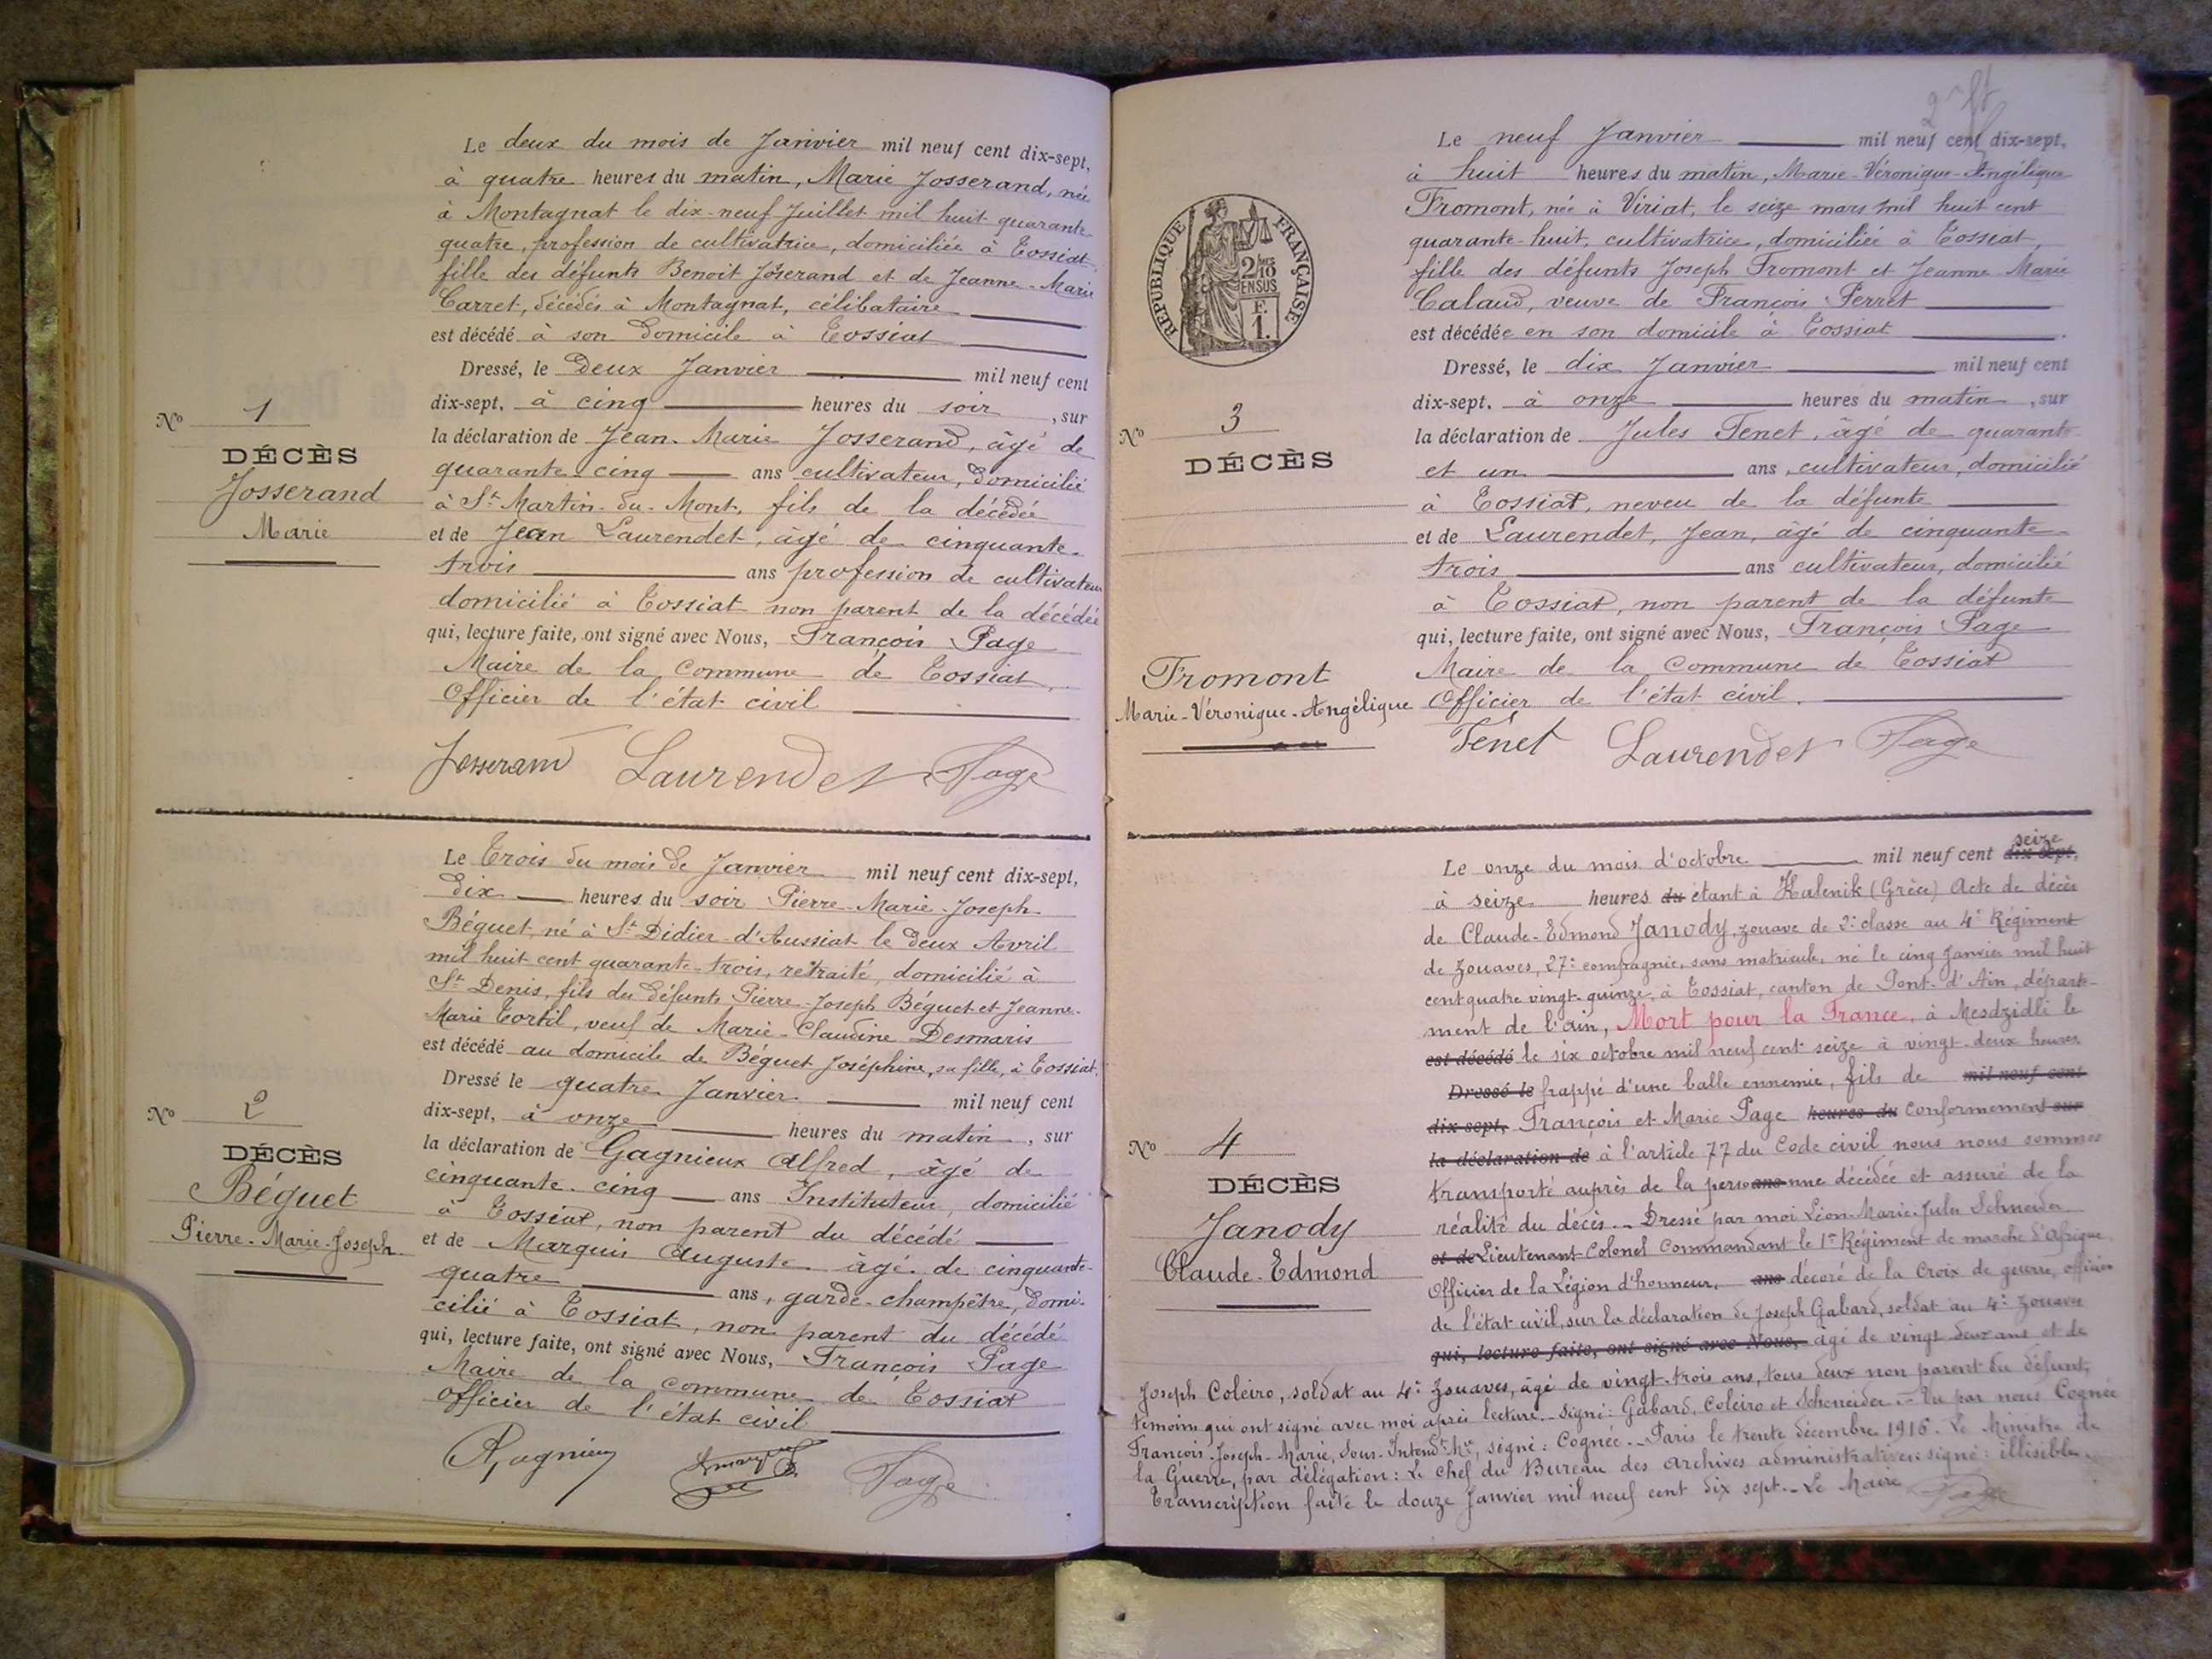 Le deux du mois de Janvier mil neuf cent dix-sept,
à quatre heures du matin, Marie Josserand, née
à Montagnat le dix-neuf Juillet mil huit quarante
quatre, profession de cultivatrice, domiciliée à Tossiat
fille des défunts Benoit Josserand et de Jeanne-Marie
Carret, décédés à Montagnat, célibataire
est décédé à son domicile à Tossiat
Dressé, le Deux Janvier mil neuf cent
dix-sept, à cinq heures du soir, sur
la déclaration de Jean-Marie Josserand, âgé de
quarante cinq ans cultivateur, domicilié
à St Martin-du-Mont, fils de la décédée
et de Jean Laurendet, âgé de cinquante-
trois ans profession de cultivateur
domicilié à Tossiat non parent de la décédée
qui, lecture faite, ont signé avec Nous, François Page
Maire de la Commune de Tossiat,
Officier de l'état civil
Josserand Laurendet Page
No 1
DÉCÈS
Josserand
Marie
Le Trois du mois de Janvier mil neuf cent dix-sept,
dix heures du soir Pierre-Marie-Joseph
Béguet, né à St Didier-d'Aussiat le deux Avril
mil huit cent quarante-trois, retraité, domicilié à
St Denis, fils des défunts Pierre-Joseph Béguet et Jeanne-
Marie Tortil, veuf de Marie-Claudine Desmaris
est décédé au domicile de Béguet Joséphine, sa fille, à Tossiat.
Dressé le quatre Janvier mil neuf cent
dix-sept, à onze heures du matin, sur
la déclaration de Gagnieux Alfred, âgé de
cinquante-cinq ans Instituteur, domicilié
à Tossiat, non parent du décédé
et de Marquis Auguste âgé de cinquante-
quatre ans, garde-champêtre, domi-
cilié à Tossiat, non parent du décédé
qui, lecture faite, ont signé avec Nous, François Page
Maire de la commune de Tossiat
officier de l'état civil
Page
No 2
DÉCÈS
Béguet
Pierre-Marie-Joseph
RÉPUBLIQUE FRANÇAISE
2/10
EN SUS
F.
1.
Le neuf Janvier mil neuf cent dix-sept,
à huit heures du matin, Marie-Véronique-Angélique
Fromont, née à Viriat, le seize mars mil huit cent
quarante-huit, cultivatrice, domiciliée à Tossiat,
fille des défunts Joseph Fromont et Jeanne-Marie
Calaud, veuve de François Perret
est décédée en son domicile à Tossiat
Dressé, le dix Janvier mil neuf cent
dix-sept, à onze heures du matin, sur
la déclaration de Jules Tenet, âgé de quarante-
et un ans, cultivateur, domicilié
à Tossiat, neveu de la défunte
et de Laurendet, Jean, âgé de cinquante-
trois ans cultivateur, domicilié
à Tossiat, non parent de la défunte
qui, lecture faite, ont signé avec Nous, François Page
Maire de la Commune de Tossiat
Officier de l'état civil.
Tenet Laurendet Page
No 3
DÉCÈS
Fromont
Marie-Véronique-Angélique
Le onze du mois d'octobre mil neuf cent dix-sept, seize
à seize heures du étant à Kalenik (Grèce) Acte de décès
de Claude-Edmond Janody, zouave de 2e classe au 4e Régiment
de Zouaves, 27e compagnie, sans matricule, né le cinq Janvier mil huit
cent quatre vingt-quinze, à Tossiat, canton de Pont-d'Ain, départe-
ment de l'ain, Mort pour la France, à Mesdzidli le
est décédé le six octobre mil neuf cent seize à vingt-deux heures
Dressé le frappé d'une balle ennemie, fils de mil neuf cent
dix-sept, François et Marie Page heures du conformement sur
la déclaration de à l'article 77 du Code civil nous nous sommes
transporté auprès de la perso ans nne décédée et assuré de la
réalité du décès.- Dressé par moi Léon-Marie-Jules Schneider
et de Lieutenant-Colonel Commandant le 1er Régiment de marche d'Afrique
Officier de la Légion d'honneur, ans décoré de la Croix de guerre, officier
de l'état civil, sur la déclaration de Joseph Gabard, soldat au 4e Zouaves
qui, lecture faite, ont signé avec Nous, agé de vingt deux ans et de
Joseph Coleiro, soldat au 4e Zouaves, âgé de vingt-trois ans, tous deux non parent du défunt,
témoins qui ont signé avec moi après lecture.- Signé: Gabard, Coleiro et Scheneider.- Vu par nous Cognée
François-Joseph-Marie, Sous-Intendt Mre, signé: Cognée.- Paris le trente décembre 1916. Le Ministre de
la Guerre, par délégation: Le chef du Bureau des Archives administratives: signé: illisible.
Transcription faite le douze Janvier mil neuf cent dix sept.- Le Maire Page
No 4
DÉCÈS
Janody
Claude-Edmond